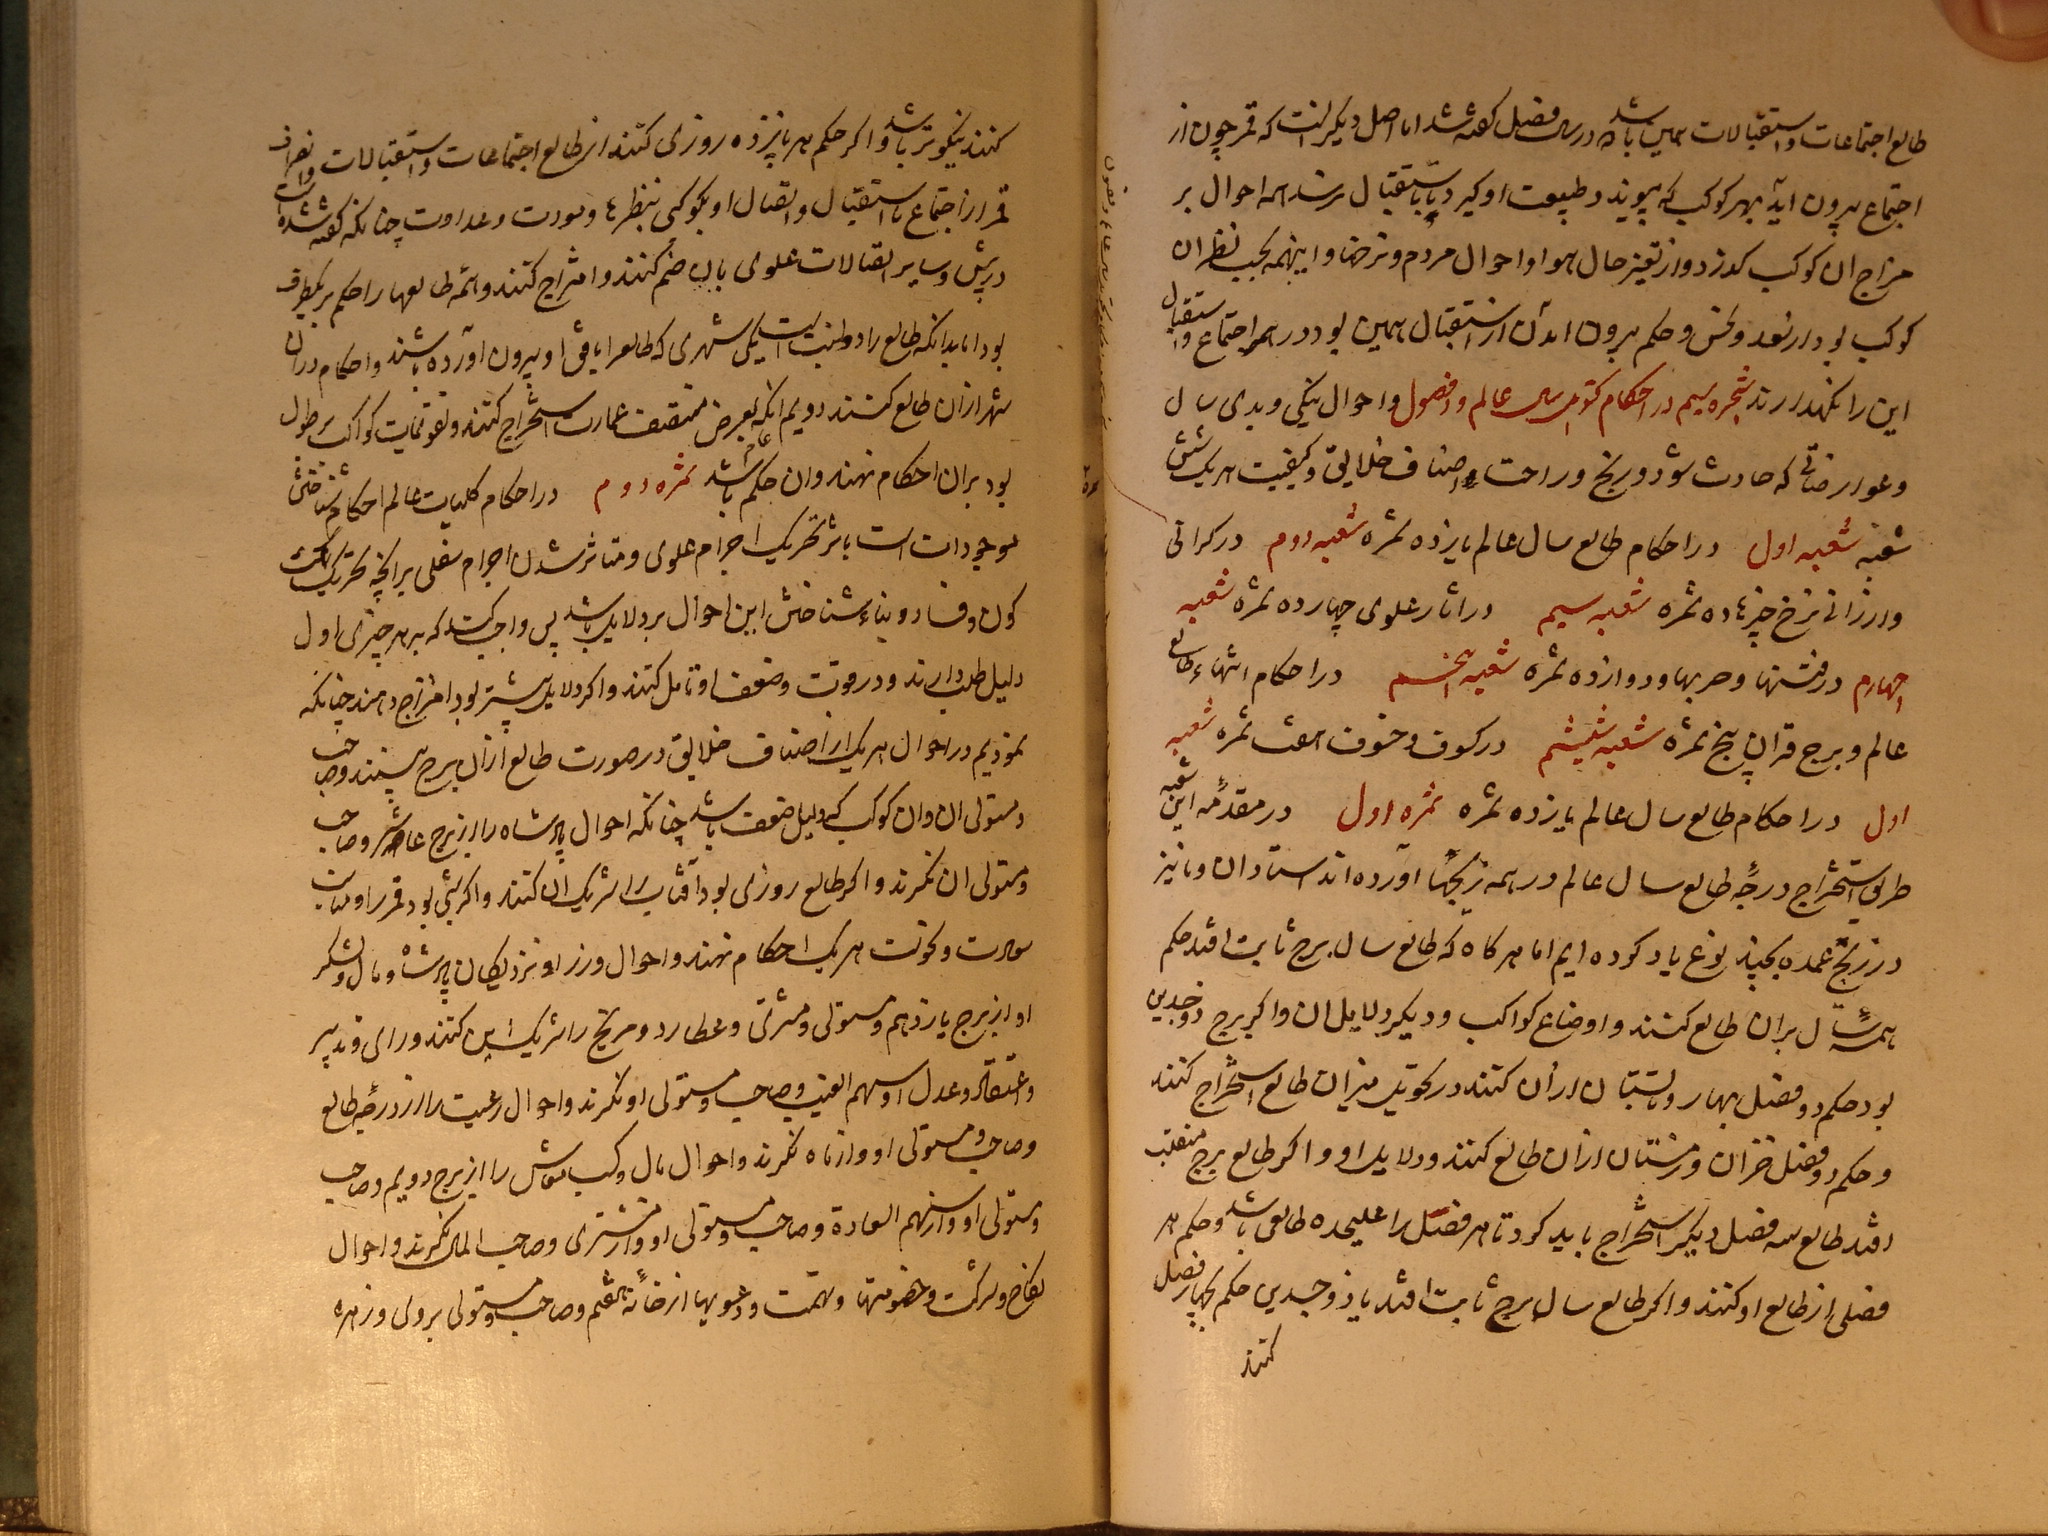 طالع اجتماعات و استقبالات همین باشد در سال فصل گفته شد اما اصل دیگر انست که قمر چون از
اجتماع بیرون اید بهر کوکب که پیوندد طبیعت او گیرد تا باستقبال رسد همه احوال بر
مزاج ان کوکب گذرد و از تغییر حال هوا و احوال مردم و نرخها و اینهمه بحسب نظر ان
کوکب بود از سعد و نحس و حکم بیرون امدن از استقبال همین بود در هر اجتماع و استقبال
این را نگهدارند شجره سیم در احکام تحویل سال عالم و فصول و احوال نیکی و بدی سال
و عوارضاتی که حادث شود و رنج و راحت اصناف خلایق و کیفیت هر یک شش
شعبه شعبه اول در احکام طالع سال عالم یازده ثمره شعبه دوم در گرانی
و ارزانی نرخ چیزها ده ثمره شعبه سیم در اثار علوی چهارده ثمره شعبه
چهارم در فتنها و حربها و دوازده ثمره شعبه پنجم در احکام انتهاء طالع
عالم و برج قران پنج ثمره شعبه ششم در کسوف و خسوف هفت ثمره شعبه
اول در احکام طالع سال عالم یازده ثمره ثمره اول در مقدمه این شعبه
طریق استخراج درجه طالع سال عالم در همه زیجها آورده اند استادان و ما نیز
در زیج عمده بچند نوع یاد کرده ایم اما هر گاه که طالع سال برج ثابت افتد حکم
همه سال بران طالع کنند و اوضاع کواکب و دیگر دلایل ان و اگر برج ذوجدین
بود حکم دو فصل بهار و تابستان ازان کنند در تحویل میزان طالع استخراج کنند
و حکم دو فصل خزان و زمستان ازان طالع کنند و دلایل او و اگر طالع برج منقلب
افتد طالع سه فصل دیگر استخراج باید کرد تا هر فصل را علیحده طالعی باشد و حکم هر
فصلی از طالع او کنند و اگر طالع سال برج ثابت افتد یا ذوجدین حکم بچهار فصل
کنند
کنند نیکوتر باشد و اگر حکم هر پانزده روزی کنند از طالع اجتماعات و استقبالات و انصراف
قمر از اجتماع یا استقبال و اتصال او بکوکبی بنظر و مودت و عداوت چنانکه گفته شده است
در پیش و سایر اتصالات علوی بان ضم کنند و امتزاج کنند و همه طالعها را حکم بر یکطرف
بود اما بدانکه طالع را دو است یکی شهری که طالع را بافق او بیرون آورده باشند و احکام دران
شهر ازان طالع کنند دویم انکه بعرض منتصف عمارت استخراج کنند و تقویمات کواکب بر طول
بود بران احکام نهند و ان حکم عام باشد ثمره دوم در احکام کلیات عالم احکام شناختن
موجودات است باثر تحریک اجرام علوی و متاثر شدن اجرام سفلی بر انچه تحریک
کون و فساد و بناء شناختن این احوال بر دلایل باشد پس واجب کند که بر هر چیزی اول
دلیل طلب دارند و در قوت و ضعف او تامل کنند و اگر دلایل بیشتر بود امتزاج دهند چنانکه
نمودیم در احوال هر یک از اصناف خلایق در صورت طالع ازان برج بینند و صاحب
و مستولی ان و ان کوکب که دلیل ضعف باشد چنانکه احوال پادشاه را از برج عاشر و صاحب
و مستولی ان نگرند و اگر طالع روزی بود آفتاب را شریک ان کنند و اگر شبی بود قمر را و مناسب
سعادت و نحوست هر یک احکام نهند و احوال وزرا و نزدیکان پادشاه و مال و لشکر
او از برج یازدهم و مستولی و مشتری و عطارد و مریخ را شریک این کنند و رای و تدبیر
و اعتقاد و عدل او سهم الغیب و صاحب و مستولی او نگرند و احوال رعیت را از درجه طالع
و صاحب و مستولی او و از ماه نگرند و احوال مال و کسب معاش را از برج دویم و صاحب
و مستولی او و از سهم السعادة و صاحب و مستولی او و از مشتری و صاحب المال نگرند و احوال
نکاح و شرکت و خصومتها و تهمت و دعویها از خانه هفتم و صاحب و مستولی بر وی و زهره